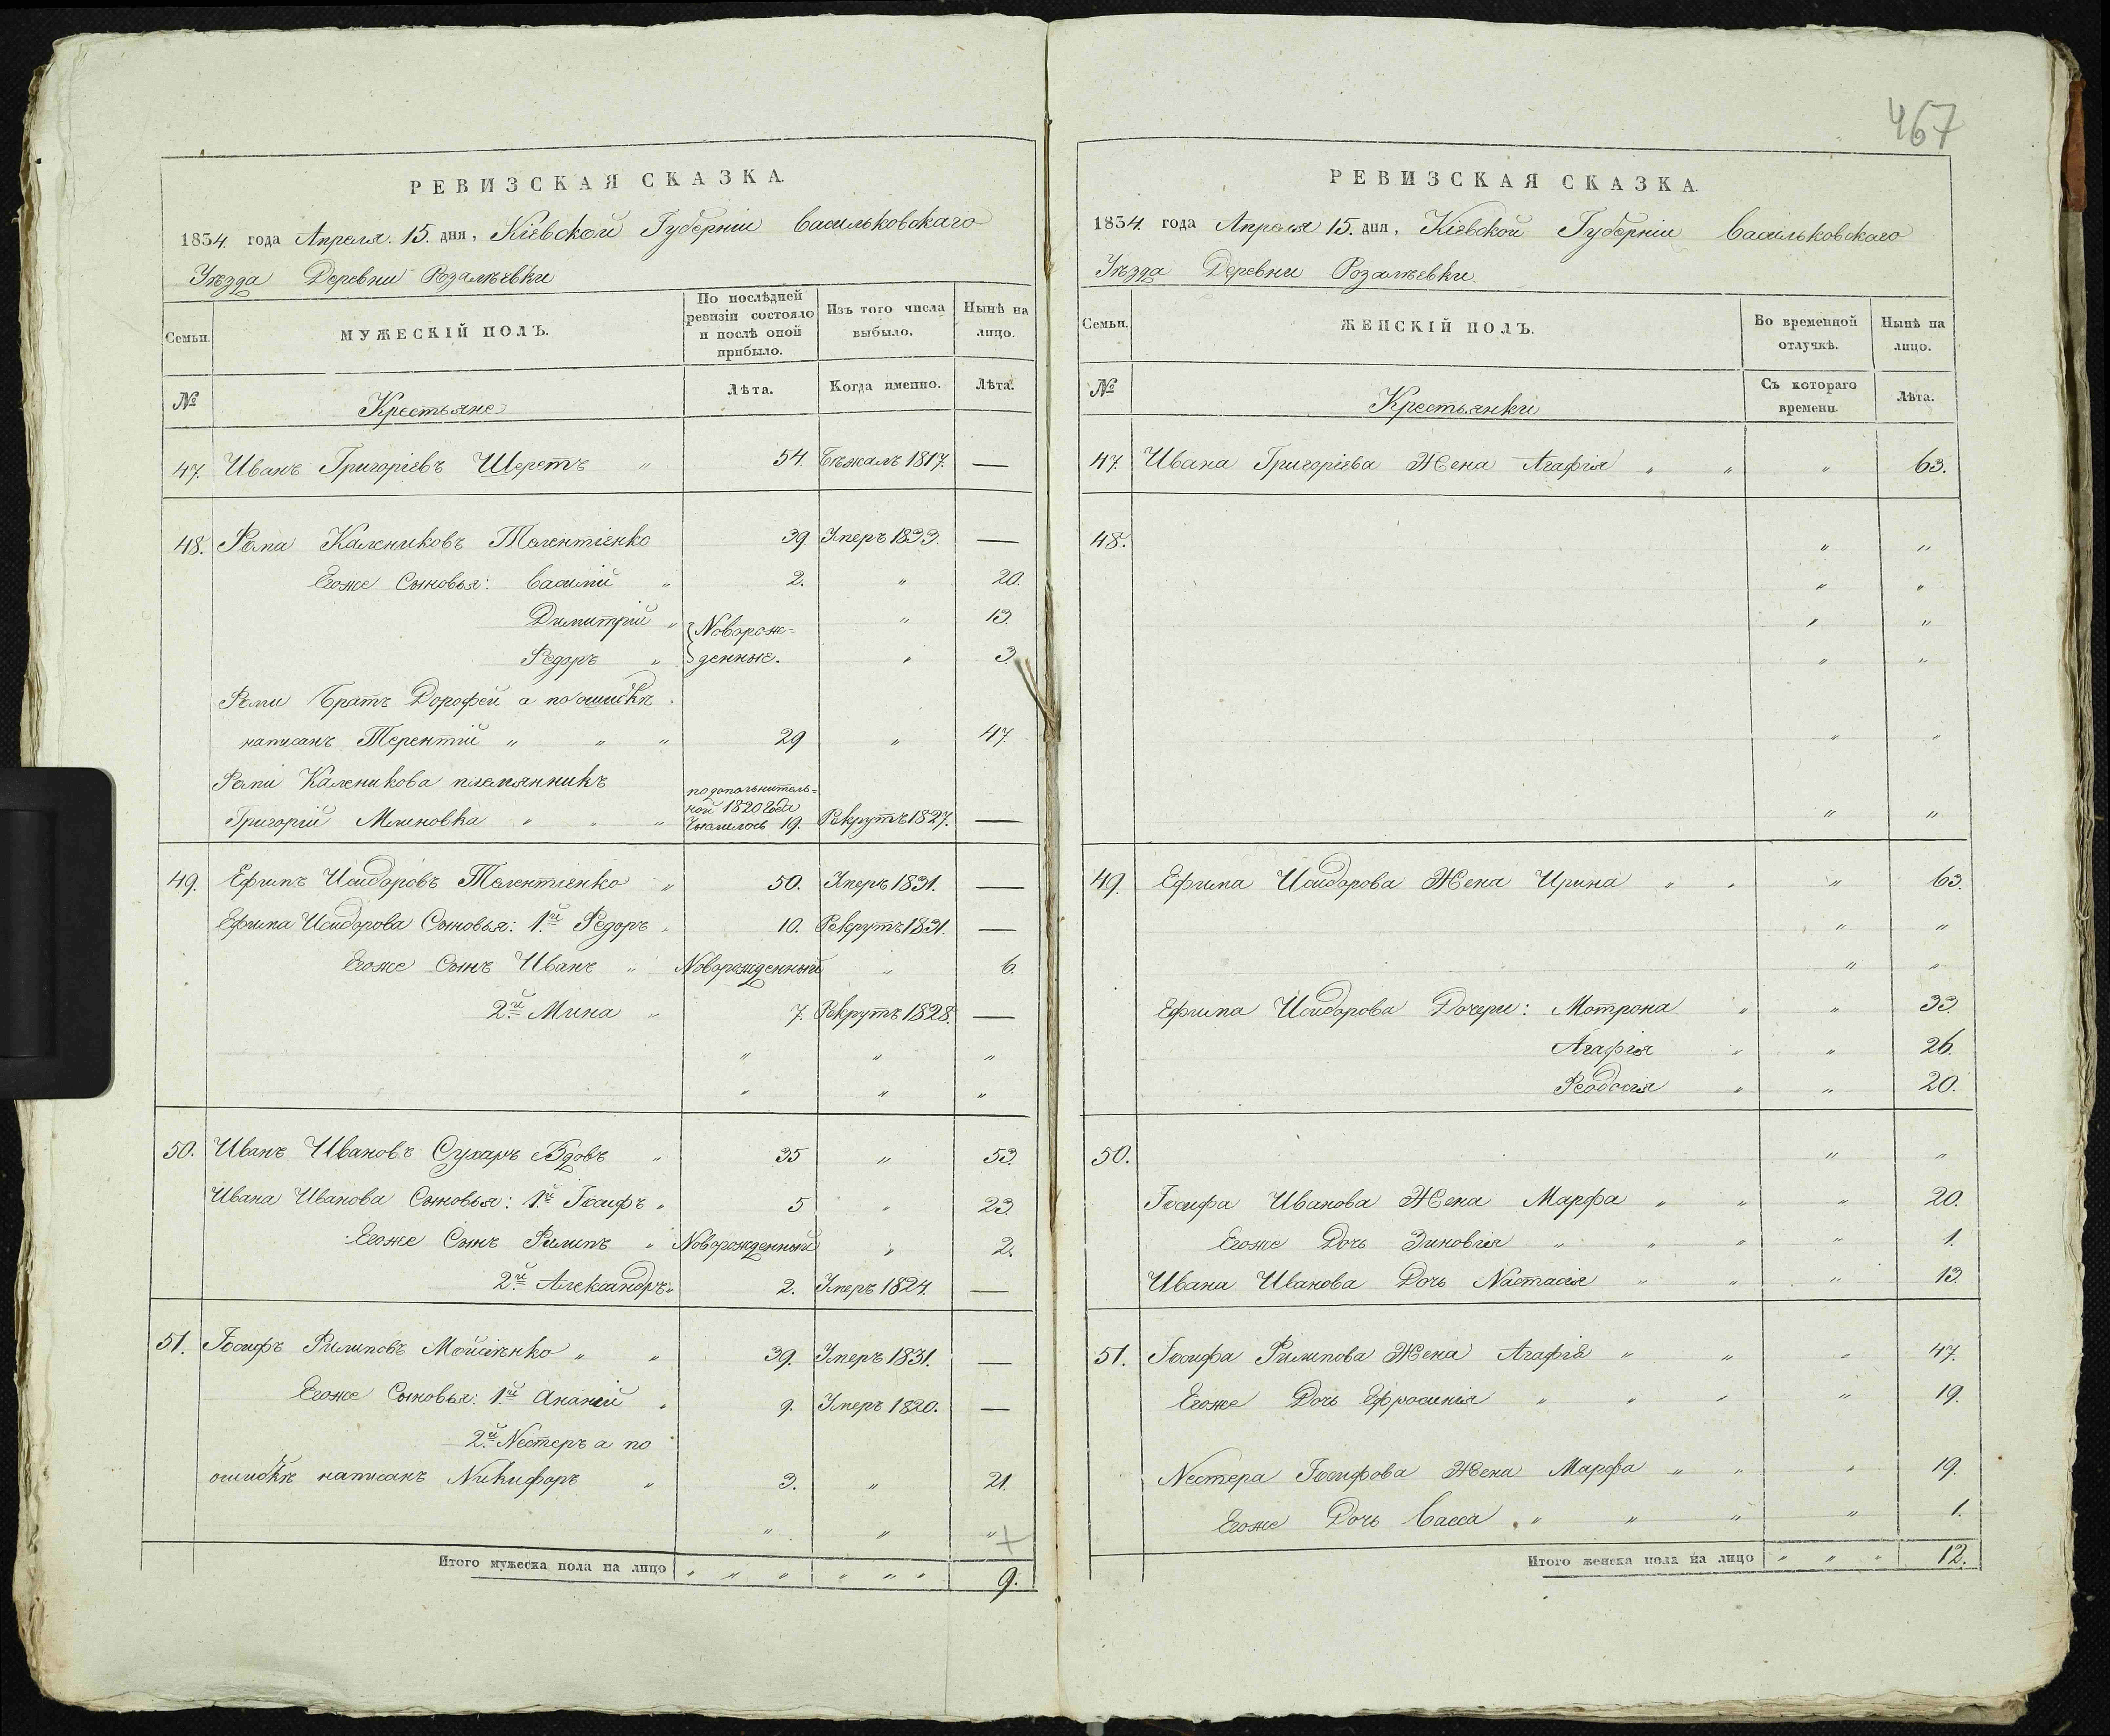 467
РЕВИЗСКАЯ СКАЗКА.
1834. года Апреля. 15. дня, Кіевской Губерніи Васильковскаго
Уѣзда Деревни Розалѣевки
Семьи.
МУЖЕСКІЙ ПОЛЪ.
По послѣдней ревизіи состояло и послѣ оной прибыло.
Изъ того числа выбыло.
Нынѣ на лицо.
№ Крестьяне Лѣта. Когда именно. Лѣта.
47. Иванъ Григоріевъ Шеретъ " 54. Бѣжалъ 1817. —
48. Фома Калениковъ Телентіенко 39. Умеръ 1833. —
Егоже Сыновья: Василій " 2. " 20.
Димитрій " Новорож= " 13.
Федоръ " денные. " 3.
Фоми Братъ Дорофей а по ошибкѣ
написанъ Терентій " " " 29 " 47.
Фоми Каленикова племянникъ
по дополнитель=
ной 1820 года
Григорій Млиновка " " " Числилось 19. Рекрутъ 1827. —
49. Ефимъ Исидоровъ Телентіенко " 50. Умеръ 1831. —
Ефима Исидорова Сыновья: 1й Федоръ " 10. Рекрутъ 1831. —
Егоже Сынъ Иванъ " Новорожденный " 6.
2й Мина " 7. Рекрутъ 1828. —
" " "
" " "
50. Иванъ Ивановъ Сухаръ Вдовъ " 35 " 53.
Ивана Иванова Сыновья: 1й Іосифъ " 5 " 23.
Егоже Сынъ Филипъ " Новорожденный " 2.
2й Александръ " 2. Умеръ 1824. —
51. Іосифъ Филиповъ Мойсіенко " " 39. Умеръ 1831. —
Егоже Сыновья: 1й Ананій " 9. Умеръ 1820. —
2й Нестеръ а по
ошибкѣ написанъ Никифоръ " 3. " 21.
" " "
Итого мужеска пола на лицо " " " " " " 9.
РЕВИЗСКАЯ СКАЗКА.
1834. года Апреля 15. дня, Кіевской Губерніи Васильковскаго
Уѣзда Деревни Розалѣевки.
Семьи.
ЖЕНСКІЙ ПОЛЪ.
Во временной отлучкѣ.
Нынѣ на лицо.
№ Крестьянки Съ котораго времени. Лѣта.
47. Ивана Григоріева Жена Агафія " " " 63.
48. " "
" "
" "
" "
" "
" "
49. Ефима Исидорова Жена Ирина " " " 63.
" "
" "
Ефима Исидорова Дочери: Мотрона " " 33.
Агафія " " 26.
Феодосія " " 20.
50. " "
Іосифа Иванова Жена Марфа " " " 20.
Егоже Дочь Зиновія " " " " 1.
Ивана Иванова Дочь Настасія " " " 13.
51. Іосифа Филипова Жена Агафія " " " 47.
Егоже Дочь Ефросинія " " " " 19.
Нестера Іосифова Жена Марфа " " " 19.
Егоже Дочь Васса " " " " 1.
Итого женска пола на лицо " " " 12.